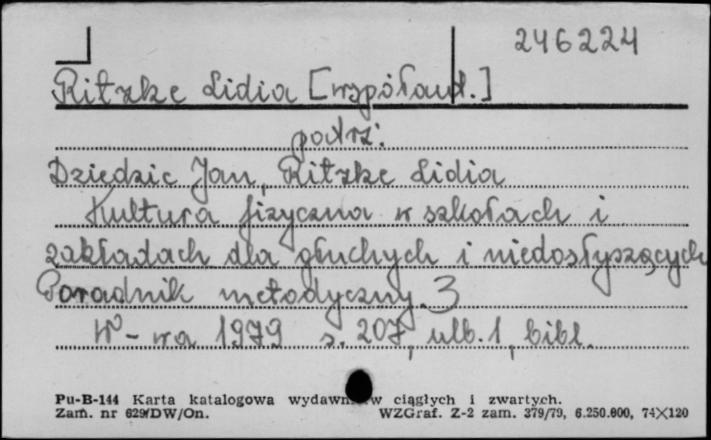 246224
Ritzke Lidia [współaut.]
patrz:
Dziedzic Jan, Ritzke Lidia
Kultura fizyczna w szkołach i
zakładach dla głuchych i niedosłyszących
Poradnik metodyczny.
W-wa 1979 s. 207, ulb. 1, bibl.
Pu-B-144 Karta katalogowa wydawn w ciągłych i zwartych.
Zam. nr 629/DW/On. WZGraf. Z-2 zam. 379/79, 6.250.000, 74×120